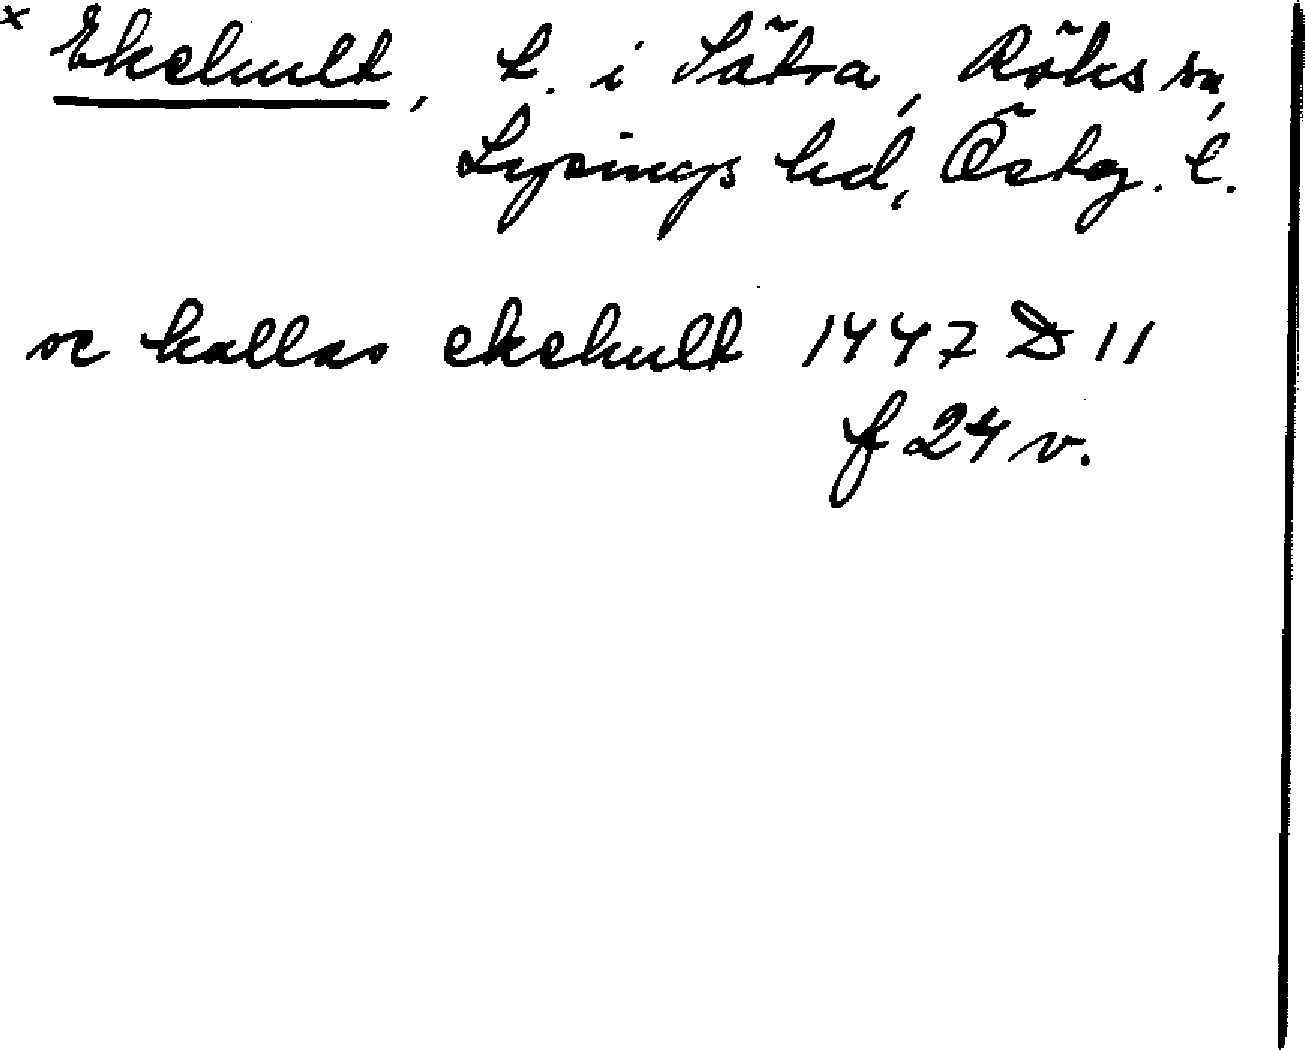 × Ekehult, t. i Sätra, Röks sn,
Lysings hd, Östg. l.
sc kallas ekehult 1447 D 11
f 24 v.